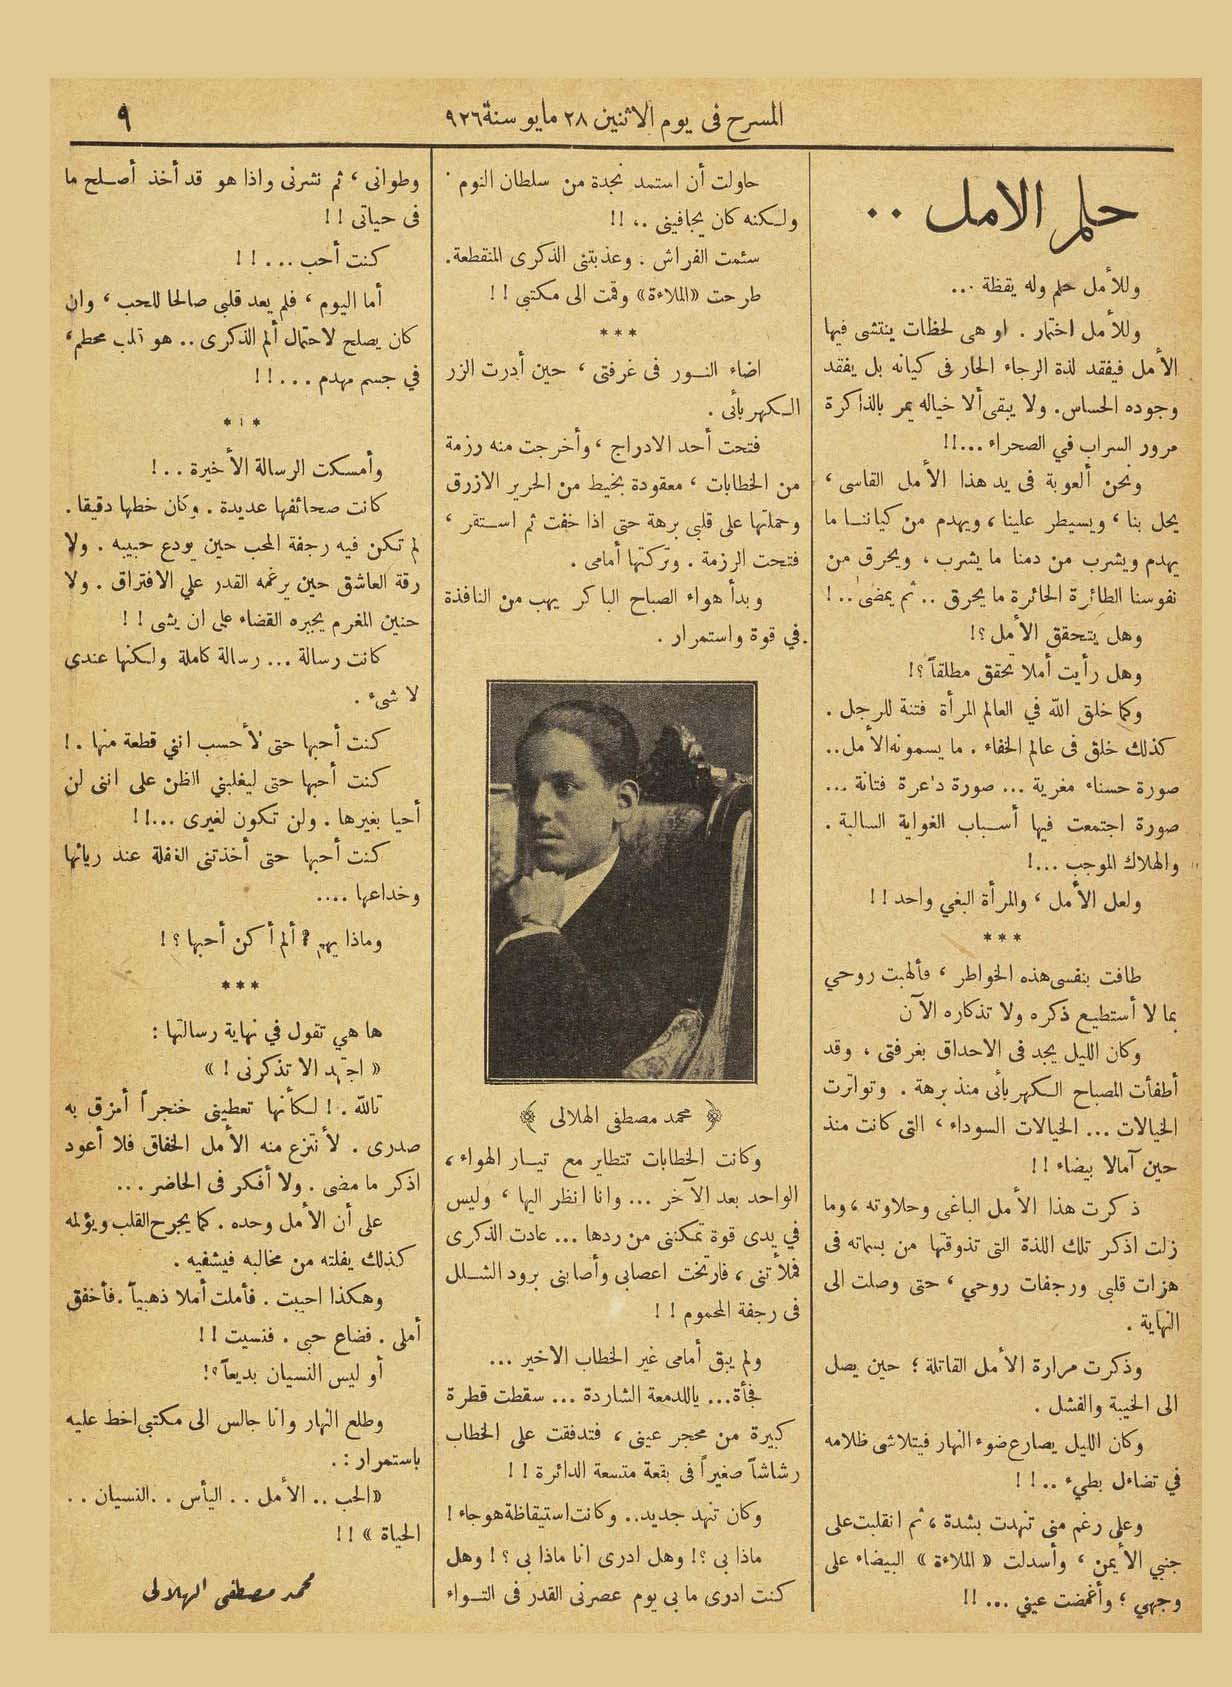 المسرح فى يوم الاثنين ٢٨ مايو سنة ٩٢٦
٩
حلم الامل ..
وللأمل حلم وله يقظة ...
وللأمل اختمار . او هى لحظات ينتشى فيها
الأمل فيفقد لذة الرجاء الحار فى كيانه بل يفقد
وجوده الحساس. ولا يبقى ألا خياله يمر بالذاكرة
مرور السراب في الصحراء ...!!
ونحن ألعوبة فى يد هذا الأمل القاسى ،
يحل بنا ، ويسيطر علينا ، ويهدم من كياننا ما
يهدم ويشرب من دمنا ما يشرب ، ويحرق من
نفوسنا الطائرة الحائرة ما يحرق .. ثم يمضى .. !
وهل يتحقق الأمل ؟!
وهل رأيت أملا تحقق مطلقاً ؟!
وكما خلق الله في العالم المرأة فتنة للرجل .
كذلك خلق فى عالم الخفاء . ما يسمونه الأمل..
صورة حسناء مغرية ... صورة داعرة فتانة ...
صورة اجتمعت فيها أسباب الغواية السالبة .
والهلاك الموجب ...!
ولعل الأمل ، والمرأة البغي واحد !!
***
طافت بنفسى هذه الخواطر ، فألهبت روحي
بما لا أستطيع ذكره ولا تذكاره الآن
وكان الليل يجد فى الاحداق بغرفتى ، وقد
أطفأت المصباح الكهربائى منذ برهة . وتواترت
الخيالات ... الخيالات السوداء ، التى كانت منذ
حين آمالا بيضاء !!
ذكرت هذا الأمل الباغى وحلاوته ، وما
زلت اذكر تلك اللذة التى تذوقتها من بسماته فى
هزات قلبى ورجفات روحي ، حتى وصلت الى
النهاية .
وذكرت مرارة الأمل القاتلة ؛ حين يصل
الى الخيبة والفشل .
وكان الليل يصارع ضوء النهار فيتلاشى ظلامه
في تضاءل بطيء .. !!
وعلى رغم منى تنهدت بشدة ، ثم انقلبت على
جنبي الأيمن ، وأسدلت « الملاءة » البيضاء على
وجهي ؛ وأغمضت عيني ... !!
حاولت أن استمد نجدة من سلطان النوم .
ولكنه كان يجافينى .. !!
سئمت الفراش . وعذبتنى الذكرى المنقطعة.
طرحت «الملاءة» وقمت الى مكتبى !!
***
اضاء النور فى غرفتى ، حين أدرت الزر
الكهربائى .
فتحت أحد الادراج ، وأخرجت منه رزمة
من الخطابات ، معقودة بخيط من الحرير الازرق
وحملتها على قلبى برهة حتى اذا خفت ثم استقر ،
فتحت الرزمة . وتركتها أمامى .
وبدأ هواء الصباح الباكر يهب من النافذة
فى قوة واستمرار .
محمد مصطفى الهلالى
وكانت الخطابات تتطاير مع تيار الهواء ،
الواحد بعد الآخر ... وانا انظر اليها ، وليس
في يدى قوة تمكننى من ردها ... عادت الذكرى
فملأتنى ، فارتخت اعصابى وأصابنى برود الشلل
فى رجفة المحموم !!
ولم يبق أمامى غير الخطاب الاخير ...
فجأة... ياللدمعة الشاردة ... سقطت قطرة
كبيرة من محجر عينى ، فتدفقت على الخطاب
رشاشاً صغيراً فى بقعة متسعة الدائرة !!
وكان تنهد جديد.. وكانت استيقاظة هوجاء !
ماذا بى ؟! وهل ادرى انا ماذا بى ؟! وهل
كنت ادرى ما بى يوم عصرنى القدر فى التواء
وطوانى ، ثم نشرنى واذا هو قد أخذ أصلح ما
فى حياتى !!
كنت أحب ... !!
أما اليوم ، فلم يعد قلبى صالحا للحب ، وان
كان يصلح لاحتمال ألم الذكرى .. هو قلب محطم ،
في جسم مهدم ... !!
***
وأمسكت الرسالة الأخيرة .. !
كانت صحائفها عديدة . وكان خطها دقيقا .
لم تكن فيه رجفة المحب حين يودع حبيبه . ولا
رقة العاشق حين يرغمه القدر على الافتراق . ولا
حنين المغرم يجبره القضاء على ان يشى !!
كانت رسالة ... رسالة كاملة ولكنها عندى
لا شىء .
كنت أحبها حتى لأحسب انني قطعة منها . !
كنت أحبها حتى ليغلبني الظن على اننى لن
أحيا بغيرها . ولن تكون لغيرى ...!!
كنت أحبها حتى أخذتنى الغفلة عند ريائها
وخداعها ....
وماذا يهم ؟ ألم أكن أحبها ؟!
***
ها هي تقول في نهاية رسالتها :
« اجتهد الا تذكرنى ! »
تالله . ! لكأنها تعطينى خنجراً أمزق به
صدرى . لأنتزع منه الأمل الخفاق فلا أعود
اذكر ما مضى . ولا أفكر فى الحاضر ...
على أن الأمل وحده . كما يجرح القلب ويؤلمه
كذلك يفلته من مخالبه فيشفيه .
وهكذا احببت . فأملت أملا ذهبياً . فأخفق
أملى . فضاع حبى . فنسيت !!
أو ليس النسيان بديعاً ؟!
وطلع النهار وانا جالس الى مكتبى اخط عليه
باستمرار : .
«الحب .. الأمل .. اليأس .. النسيان ..
الحياة » !!
محمد مصطفى الهلالى